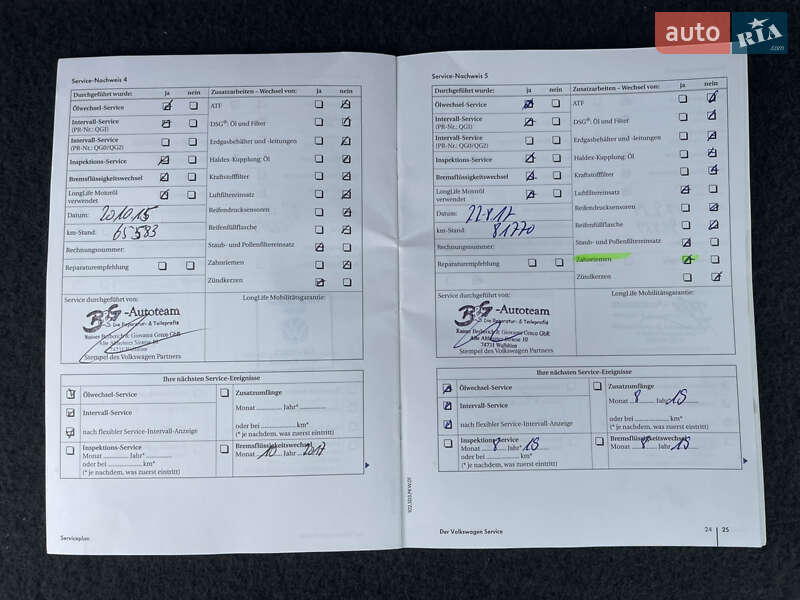 auto RIA .com
Service-Nachweis 4
Durchgeführt wurde: ja nein
Ölwechsel-Service
Intervall-Service
(PR-Nr.: QG1)
Intervall-Service
(PR-Nr.: QG0/QG2)
Inspektions-Service
Bremsflüssigkeitswechsel
LongLife Motoröl
verwendet
Datum: 20.10.15
km-Stand: 65583
Rechnungsnummer:
Reparaturempfehlung
Zusatzarbeiten – Wechsel von: ja nein
ATF
DSG®: Öl und Filter
Erdgasbehälter und -leitungen
Haldex-Kupplung: Öl
Kraftstofffilter
Luftfiltereinsatz
Reifendrucksensoren
Reifenfüllflasche
Staub- und Pollenfiltereinsatz
Zahnriemen
Zündkerzen
Service durchgeführt von:
-Autoteam
Die Reparatur- & Teileprofis
Alte Altheimer Strasse 10
74731 Walldürn
Stempel des Volkswagen Partners
LongLife Mobilitätsgarantie:
Ihre nächsten Service-Ereignisse
Ölwechsel-Service
Intervall-Service
nach flexibler Service-Intervall-Anzeige
Inspektions-Service
Monat ........ Jahr*........
oder bei ............ km*
(* je nachdem, was zuerst eintritt)
Zusatzumfänge
Monat ........ Jahr*........
oder bei ............ km*
(* je nachdem, was zuerst eintritt)
Bremsflüssigkeitswechsel
Monat 10 Jahr 2017
Serviceplan
Service-Nachweis 5
Durchgeführt wurde: ja nein
Ölwechsel-Service
Intervall-Service
(PR-Nr.: QG1)
Intervall-Service
(PR-Nr.: QG0/QG2)
Inspektions-Service
Bremsflüssigkeitswechsel
LongLife Motoröl
verwendet
Datum: 22.8.17
km-Stand: 81770
Rechnungsnummer:
Reparaturempfehlung
Zusatzarbeiten – Wechsel von: ja nein
ATF
DSG®: Öl und Filter
Erdgasbehälter und -leitungen
Haldex-Kupplung: Öl
Kraftstofffilter
Luftfiltereinsatz
Reifendrucksensoren
Reifenfüllflasche
Staub- und Pollenfiltereinsatz
Zahnriemen
Zündkerzen
Service durchgeführt von:
-Autoteam
Die Reparatur- & Teileprofis
Alte Altheimer Strasse 10
74731 Walldürn
Stempel des Volkswagen Partners
LongLife Mobilitätsgarantie:
Ihre nächsten Service-Ereignisse
Ölwechsel-Service
Intervall-Service
nach flexibler Service-Intervall-Anzeige
Inspektions-Service
Monat 8 Jahr* 18
oder bei ............ km*
(* je nachdem, was zuerst eintritt)
Zusatzumfänge
Monat 8 Jahr 19
oder bei ............ km*
(* je nachdem, was zuerst eintritt)
Bremsflüssigkeitswechsel
Monat 8 Jahr 19
Der Volkswagen Service
24 25